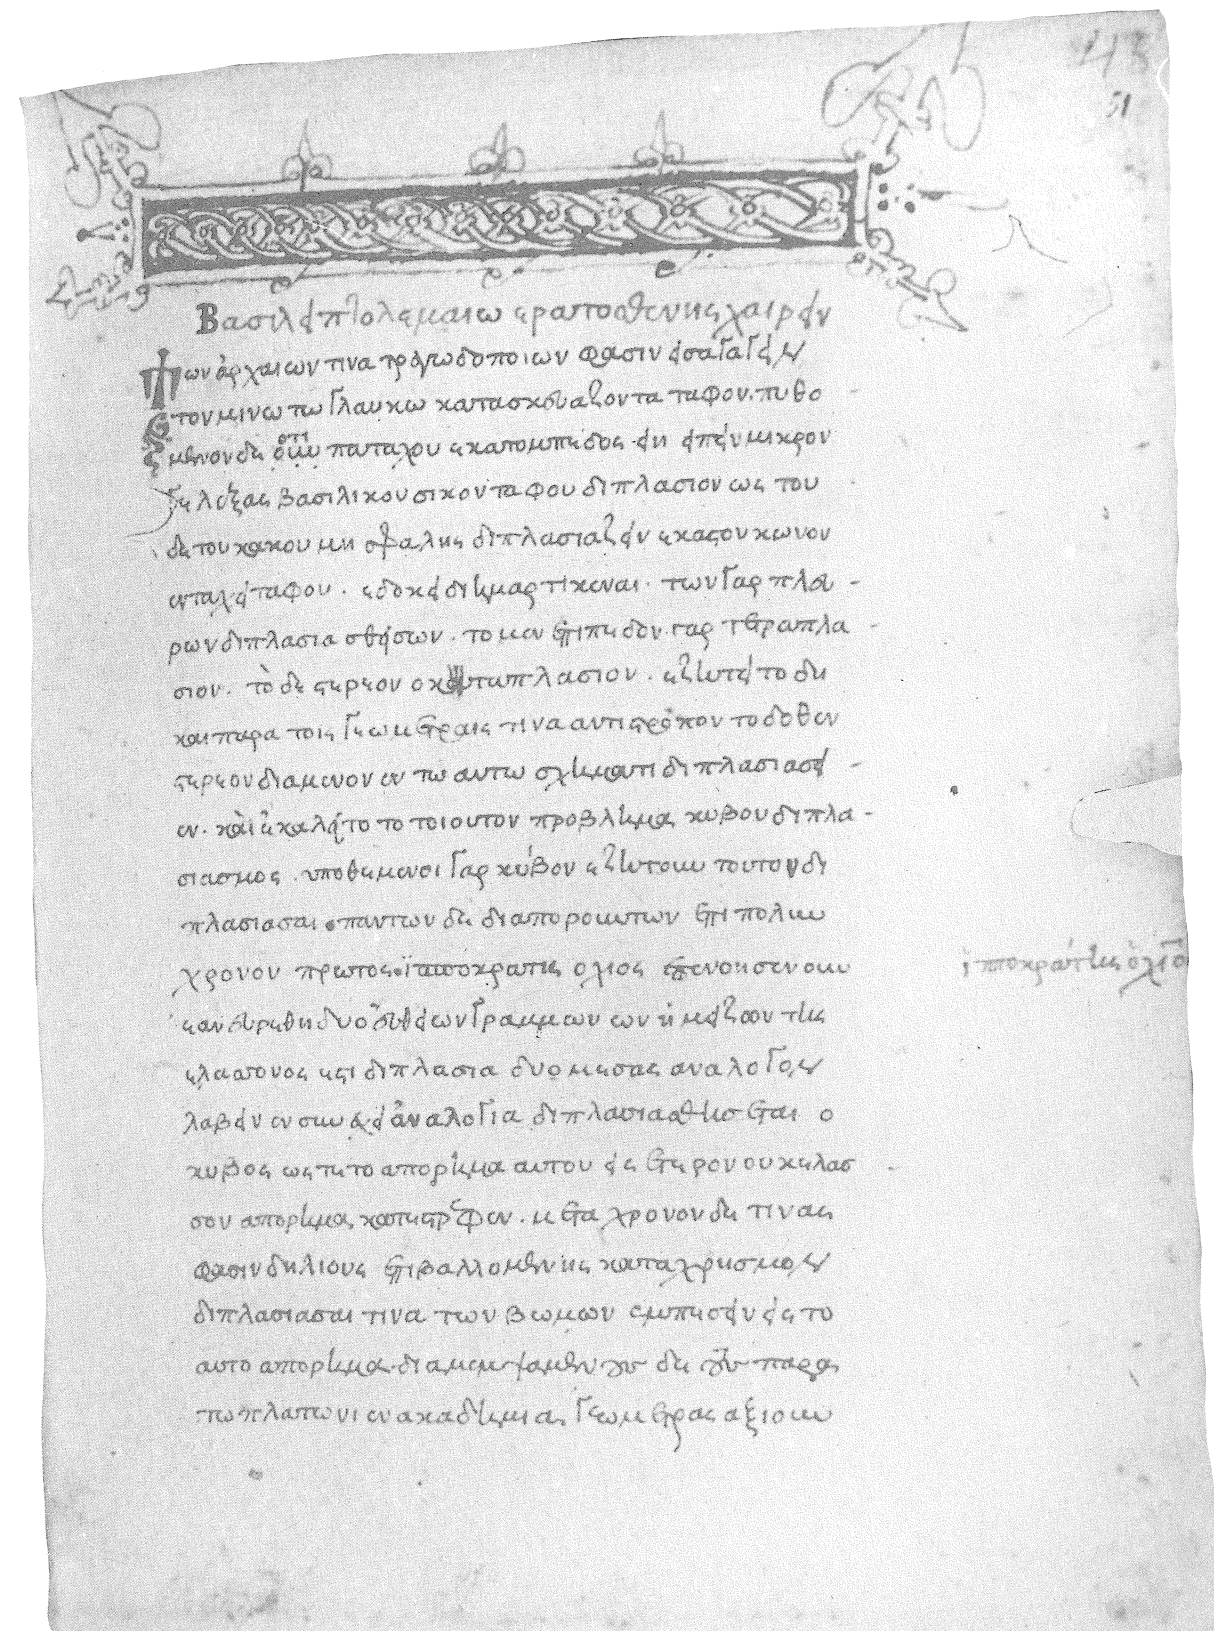 43
51
Βασιλει πτολεμαιω ερατοσθενης χαιρειν
Των ἀρχαιων τινα τραγωδοποιων φασιν εισαγαγειν
τον μινω τω γλαυκω κατασκευαζοντα ταφον. πυθο
μενον δε οτι πανταχου εκατομπεδος ειη ειπειν μικρον
γε λεξας βασιλικου σικον ταφου διπλασιον ως του
δε του κακου μη σφαλης διπλασιαζειν εκαστου κωνου
εν ταχει ταφου. εδοκει διημαρτικεναι. των γαρ πλευ
ρων διπλασιασθεισων. το μεν επιπεδον γαρ τετραπλα
σιον. τὸ δε στερεον οκταπλασιον. εζητειτο δη
και παρα τοις γεωμετραις τινα αντιστρόπον το δοθεν
στερεον διαμενον εν τω αυτω σχηματι διπλασιασει
εν. κὰι ἐκαλειτο το τοιουτον προβλημα κυβου διπλα
σιασμος. υποθεμενοι γαρ κύβον εζητουν τουτον δι
πλασιασαι. παντων δε διαπορουντων επι πολυν
χρονον πρωτος ϊπποκρατης ο χιος επενοησεν οτι
ἱπποκράτης ὁ χῖο
εαν ευρεθη δυο εὐθειων γραμμων ων ἡ μειζων της
ελασσονος εστι διπλασια δυο μεσας αναλογον
λαβειν εν συνεχει ἀναλογια διπλασιασθησεται ο
κυβος ωστε το απορημα αυτου εις ετερον ουκ ελασ
σον απορημα κατεστρεφεν. μετα χρονον δε τινας
φασιν δηλιους επιβαλλομενης κατα χρησμον
διπλασιασαι τινα των βωμων εμπεσειν εις το
αυτο απορημα. διαπεμψαμενους δε τους παρα
τω πλατωνι εν ακαδημια γεωμετρας αξιουν